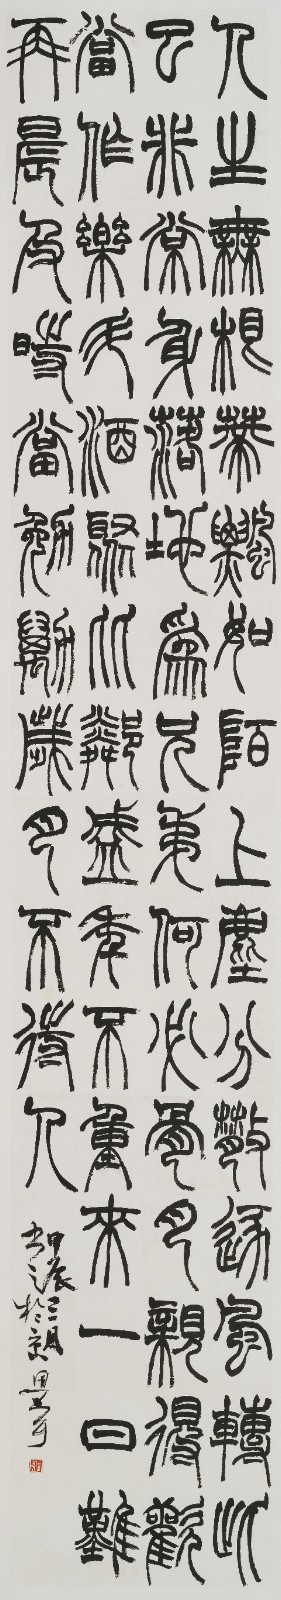 人生無根蒂飄如陌上塵分散逐風轉此
已非常身落地為兄弟何必骨肉親得歡
當作樂斗酒聚比鄰盛年不重來一日難
再晨及時當勉勵歲月不待人
甲辰三月
書之於京